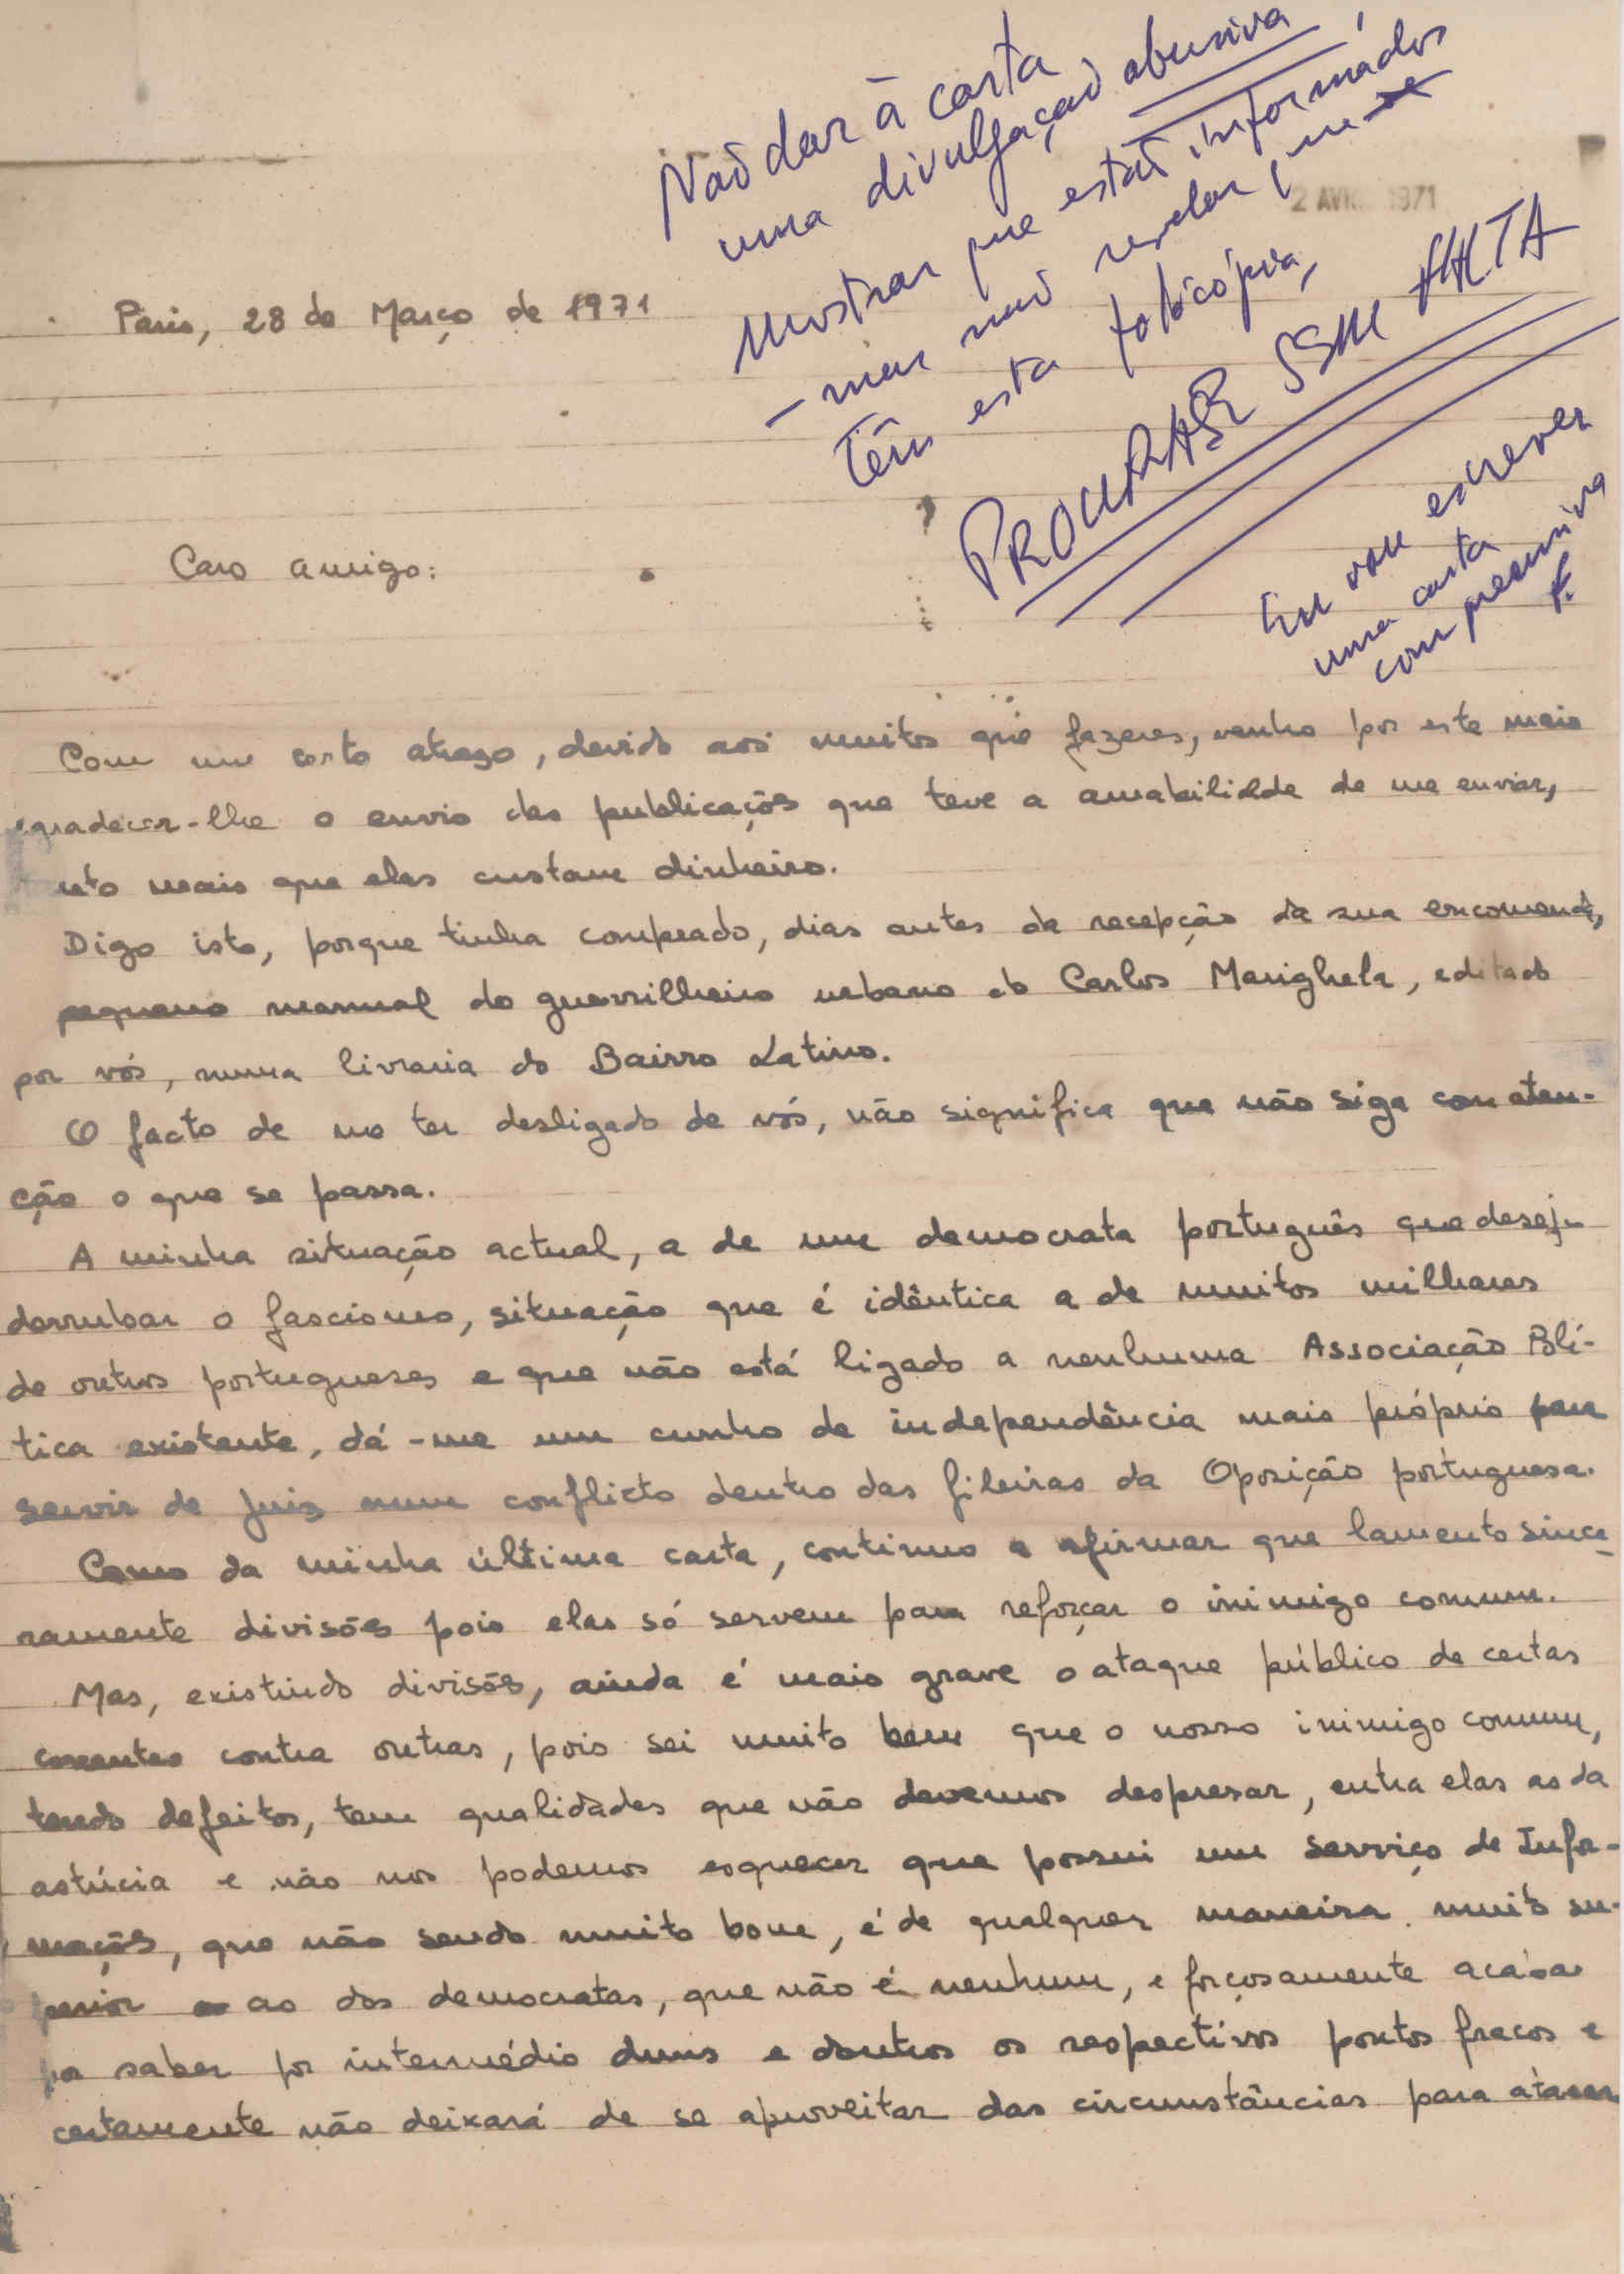 Não dar à carta
uma divulgação abusiva,
Mostrar que estão informados
- mas não revelar que se
têm esta fotocópia,
PROCURAR SEM FALTA
Eu vou escrever
uma carta
compreensiva
F.
2 AVR 1971
Paris, 28 de Março de 1971
Caro amigo:
Com um certo atraso, devido aos muitos que fazeres, venho por este meio
agradecer-lhe o envio das publicações que teve a amabilidade de me enviar,
tanto mais que elas custam dinheiro.
Digo isto, porque tinha comprado, dias antes da recepção da sua encomenda,
pequeno manual do guerrilheiro urbano do Carlos Marighela, editado
por vós, numa livraria do Bairro Latino.
O facto de me ter desligado de vós, não significa que não siga com aten-
ção o que se passa.
A minha situação actual, a de um democrata português que deseja
derrubar o fascismo, situação que é idêntica a de muitos milhares
de outros portugueses e que não está ligado a nenhuma Associação Polí-
tica existente, dá-me um cunho de independência mais próprio para
servir de juiz num conflicto dentro das fileiras da Oposição portuguesa.
Como da minha última carta, continuo a afirmar que lamento since-
ramente divisões pois elas só servem para reforçar o inimigo comum.
Mas, existindo divisões, ainda é mais grave o ataque público de certas
correntes contra outras, pois sei muito bem que o nosso inimigo comum,
tendo defeitos, tem qualidades que não devemos despresar, entra elas as da
astúcia e não nos podemos esquecer que possui um serviço de Infor-
mações, que não sendo muito bom, é de qualquer maneira muito su-
perior ao dos democratas, que não é nenhum, e forçosamente acaba
por saber por intermédio duns e doutros os respectivos pontos fracos e
certamente não deixará de se aproveitar das circunstâncias para atacar